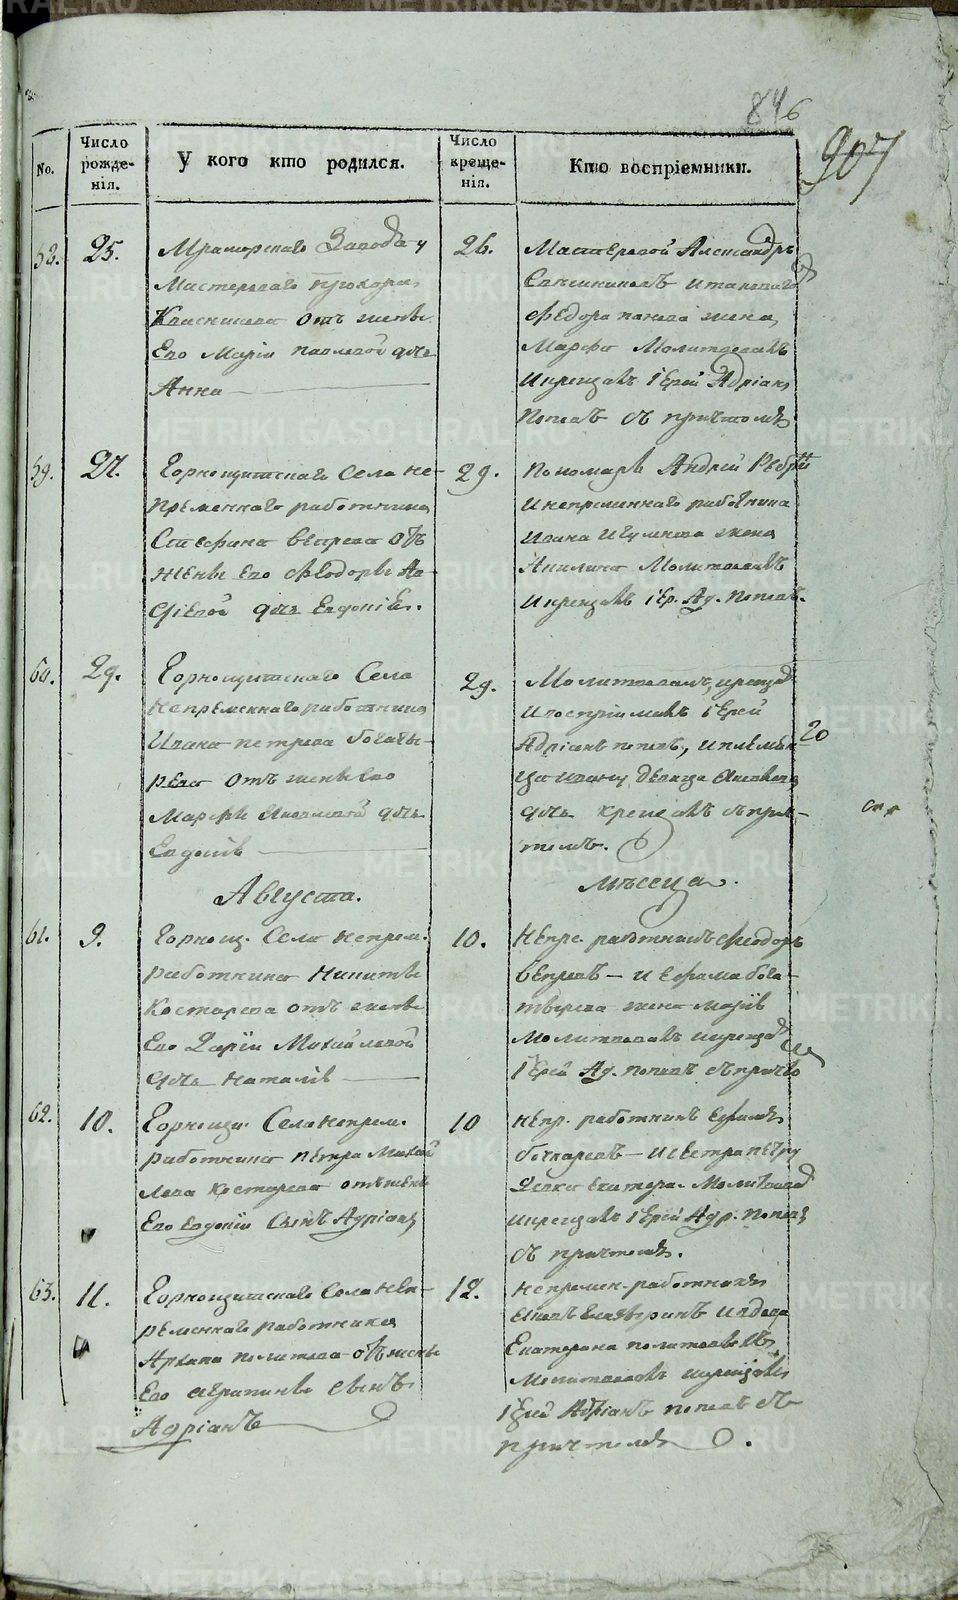 846
907
No.
Число рожденія.
У кого кто родился.
Число крещенія.
Кто воспріемники.
58.
25.
Мраморскаго Завода у
Мастероваго Прохора
от жены
Его Маріи Павловой дочь
Анна
26.
Мастеровой Александръ
и таковаго
Федора Панова жена
Марфа Молитвовалъ
и крещалъ Іерей Адріанъ
Поповъ съ причтомъ
59.
27.
Горнощитскаго Села не-
пременнаго работника
Стефана Вепрева отъ
жены Его Феодоры Ав-
дочь Евдокія.
29.
Пономарь Андрей
и непременнаго работника
Ивана Игумнова жена
Акилина Молитвовалъ
и крещалъ Іер. Ад. Поповъ.
60.
29.
Горнощитскаго Села
Непременнаго работника
Ивана Петрова Богаты-
рева отъ жены Его
Марфы дочь
Евдокія
29.
Молитвовалъ, крещалъ
и воспріималъ Іерей
Адріанъ Поповъ, и племян-
ца девица
дочь крещалъ съ прич-
томъ.
20
Августа.
Мѣсеца.
61.
9.
Горнощ. Села Непрем.
работника Никиты
Костарева отъ жены
Его Даріи Михайловой
дочь Наталія
10.
Непре. работникъ Феодоръ
Вепревъ - и Ефима Бога-
тырева жена Марія
Молитвовалъ и крещалъ
Іерей Ад. Поповъ съ причто
62.
10.
Горнощи. Села непрем.
работника Петра Михай
лова Костарева отъ жены
Его Евдокіи Сынъ Адріанъ
10
Непр. работникъ Ефимъ
Бочкаревъ - и сестра Петру
Девка Екатера. Молитвовал
и крещалъ Іерей Адр. Поповъ
съ причтомъ.
63.
11.
Горнощитскаго Села Неп-
ременнаго работника
Архипа Политова отъ жены
Его Агрипины Сынъ
Адріанъ
12.
Непремен. работникъ
и вдова
Екатерина Политова
Молитвовалъ и крещалъ
Іерей Адріанъ Поповъ съ
причтомъ.